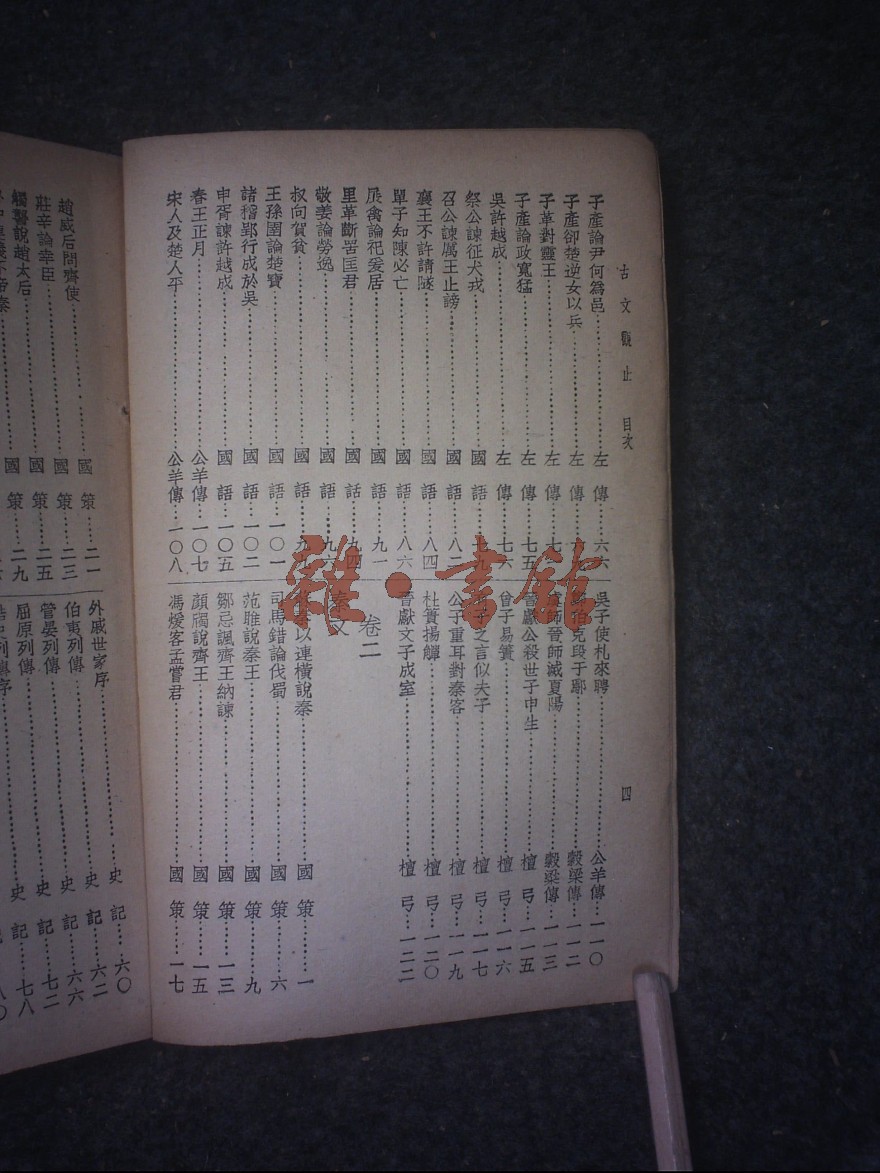 古文觀止 目次 四
子產論尹何爲邑……左傳……六六
子產卻楚逆女以兵……左傳……六
子革對靈王……左傳……七
子產論政寬猛……左傳……七五
吳許越成……左傳……七六
祭公諫征犬戎……國語……七九
召公諫厲王止謗……國語……八一
襄王不許請隧……國語……八四
單子知陳必亡……國語……八六
展禽論祀爰居……國語……九一
里革斷罟匡君……國話……九四
敬姜論勞逸……國語……九六
叔向賀貧……國語……九九
王孫圉論楚寶……國語……一〇一
諸稽郢行成於吳……國語……一〇二
申胥諫許越成……國語……一〇五
春王正月……公羊傳……一〇七
宋人及楚人平……公羊傳……一〇八
吳子使札來聘……公羊傳……一一〇
鄭伯克段于鄢……穀梁傳……一一二
虞師晉師滅夏陽……穀梁傳……一一三
晉獻公殺世子申生……檀弓……一一五
曾子易簀……檀弓……一一六
有子之言似夫子……檀弓……一一七
公子重耳對秦客……檀弓……一一九
杜蕢揚觶……檀弓……一二〇
晉獻文子成室……檀弓……一二二
卷二
秦文
蘇秦以連橫說秦……國策……一
司馬錯論伐蜀……國策……六
范雎說秦王……國策……九
鄒忌諷齊王納諫……國策……一三
顏斶說齊王……國策……一五
馮煖客孟嘗君……國策……一七
趙威后問齊使……國策……二一
莊辛論幸臣……國策……二三
觸讋說趙太后……國策……二五
國策……二九
外戚世家序……史記……六〇
伯夷列傳……史記……六二
管晏列傳……史記……六六
屈原列傳……史記……七二
史記……七八
雜·書館